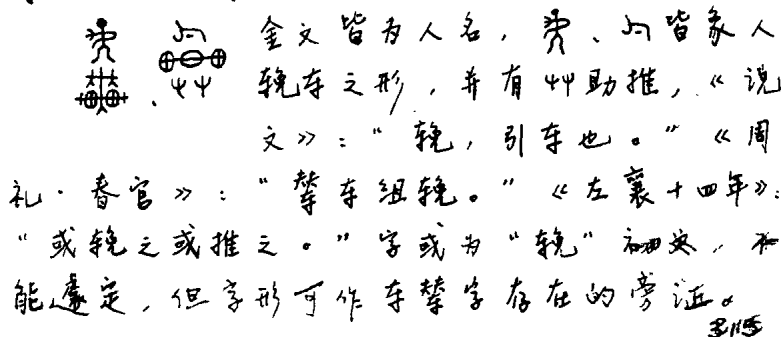 金文皆为人名，、皆象人
挽车之形，并有艸助推，《说
文》：“輓，引车也。”《周
礼·春官》：“辇车组輓。”《左襄十四年》：
“或輓之或推之。”字或为“輓”初文，不
能遽定，但字形可作车辇字存在的旁证。